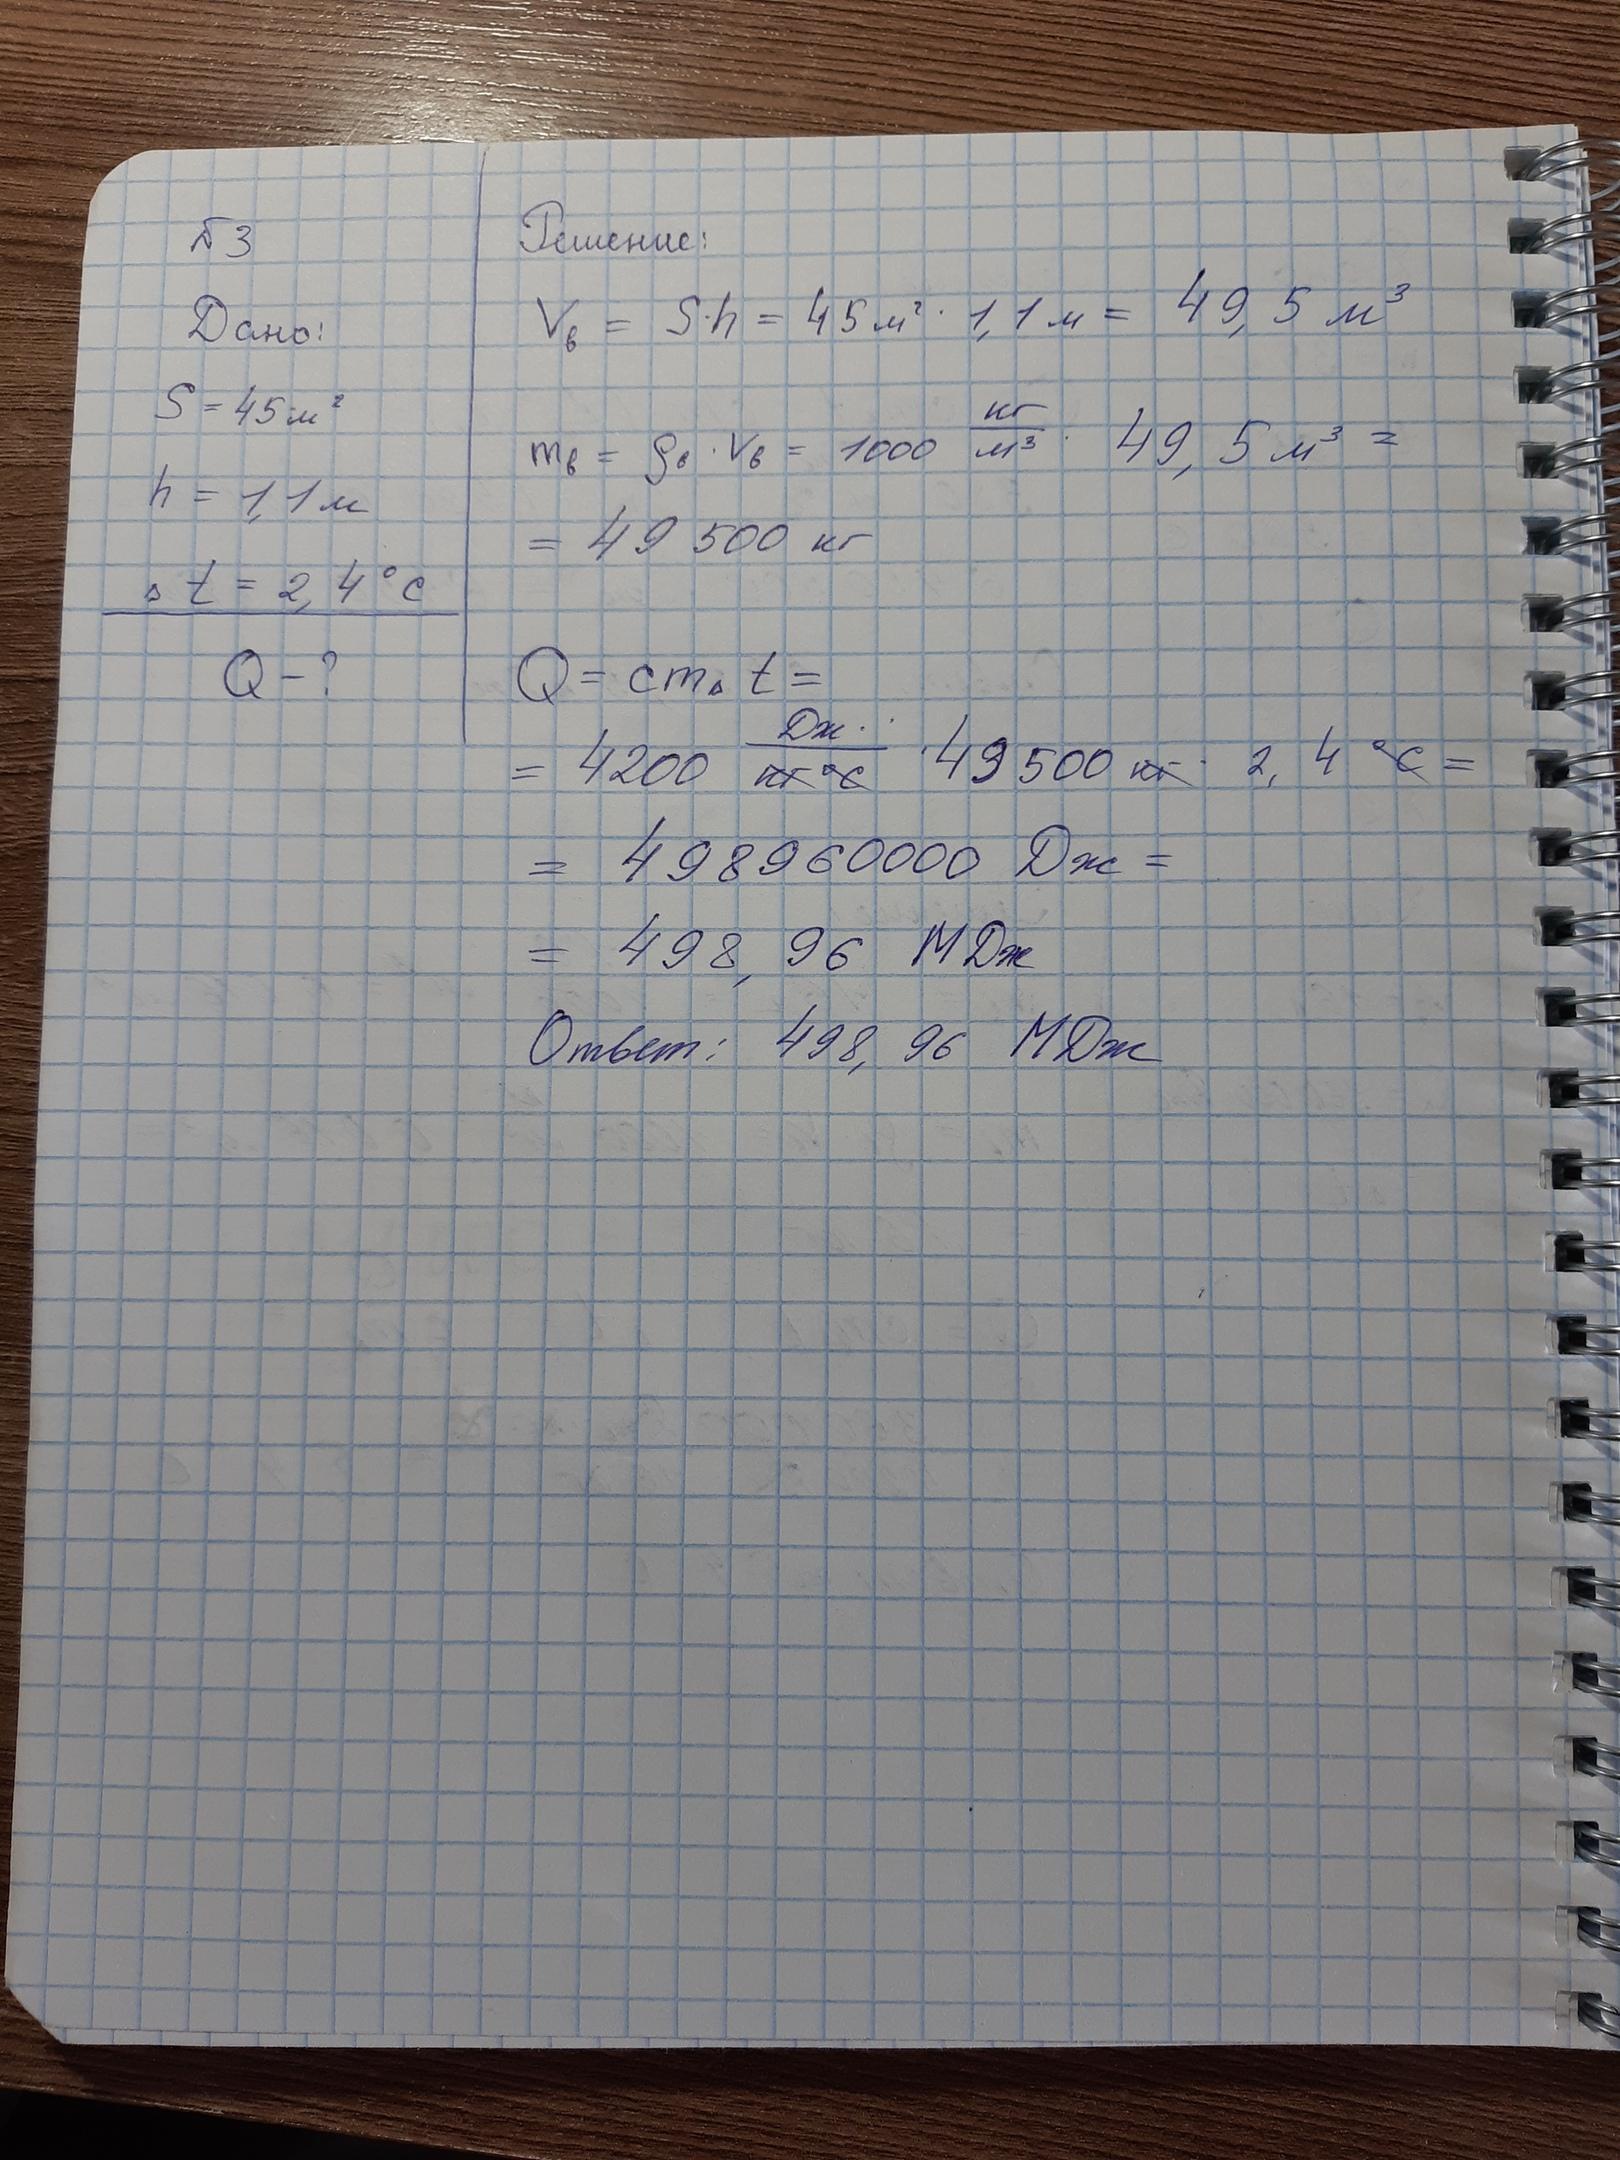 №3
Дано:
S = 45 м²
h = 1,1 м
Δt = 2,4°C
Q - ?
Решение:
Vв = S·h = 45 м² · 1,1 м = 49,5 м³
mв = ρв · Vв = 1000 кг/м³ · 49,5 м³ =
= 49 500 кг
Q = cmΔt =
= 4200 Дж/кг°C · 49500 кг · 2,4 °C =
= 498960000 Дж =
= 498,96 МДж
Ответ: 498,96 МДж